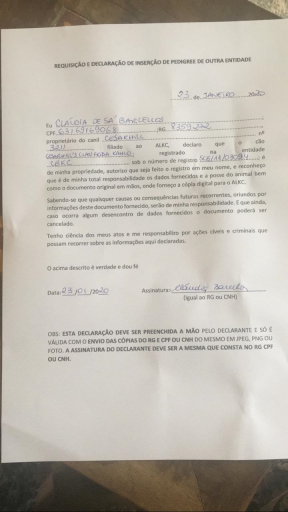 REQUISIÇÃO E DECLARAÇÃO DE INSENÇÃO DE PEDIGREE DE OUTRA ENTIDADE
23 de JANEIRO 2020
Eu CLAUDIA DE SÁ BARCELLOS
CPF RG
proprietário do canil nº
3211 filiado ao ALKC, declaro que o cão
registrado na entidade
CBKC sob o número de registro , é
de minha propriedade, autorizo que seja feito o registro em meu nome, e reconheço
que é de minha total responsabilidade os dados fornecidos e a posse do animal bem
como o documento original em mãos, onde forneço a cópia digital para o ALKC.
Sabendo-se que quaisquer causas ou consequências futuras recorrentes, oriundos por
informações deste documento fornecido, serão de minha responsabilidade. E que ainda,
caso ocorra algum desencontro de dados fornecidos o documento poderá ser
cancelado.
Tenho ciência dos meus atos e me responsabilizo por ações cíveis e criminais que
possam recorrer sobre as informações aqui declaradas.
O acima descrito é verdade e dou fé
Data: 23/01/2020 Assinatura:
(igual ao RG ou CNH)
OBS: ESTA DECLARAÇÃO DEVE SER PREENCHIDA A MÃO PELO DECLARANTE E SÓ É
VÁLIDA COM O ENVIO DAS CÓPIAS DO RG E CPF OU CNH DO MESMO EM JPEG, PNG OU
FOTO. A ASSINATURA DO DECLARANTE DEVE SER A MESMA QUE CONSTA NO RG CPF
OU CNH.